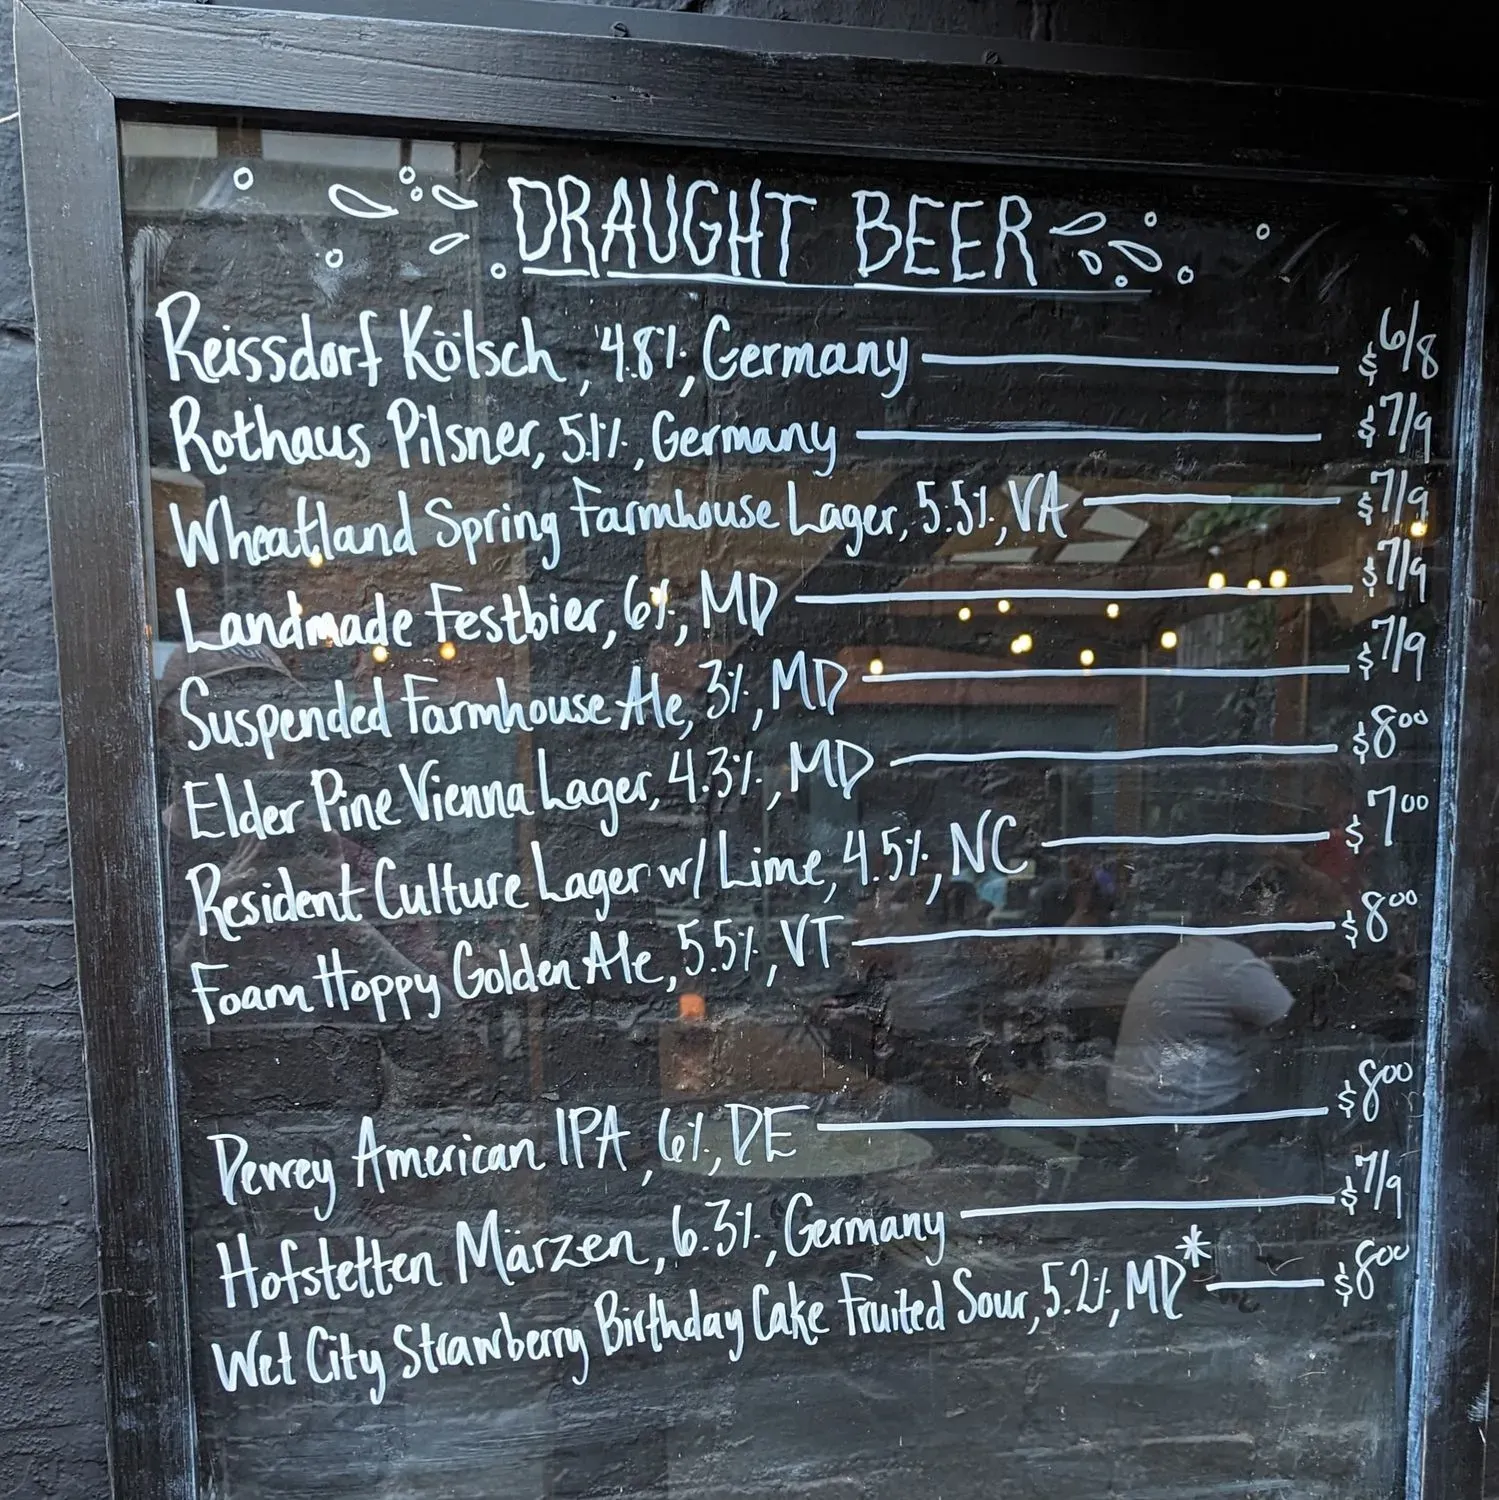 DRAUGHT BEER
Reissdorf Kölsch, 4.8%, Germany $6/8
Rothaus Pilsner, 5.1%, Germany $7/9
Wheatland Spring Farmhouse Lager, 5.5%, VA $7/9
Landmade Festbier, 6%, MD $7/9
Suspended Farmhouse Ale, 3%, MD $7/9
Elder Pine Vienna Lager, 4.3%, MD $8.00
Resident Culture Lager w/ Lime, 4.5%, NC $7.00
Foam Hoppy Golden Ale, 5.5%, VT $8.00
Dewey American IPA, 6%, DE $8.00
Hofstetten Märzen, 6.3%, Germany $7/9
Wet City Strawberry Birthday Cake Fruited Sour, 5.2%, MD* $8.00